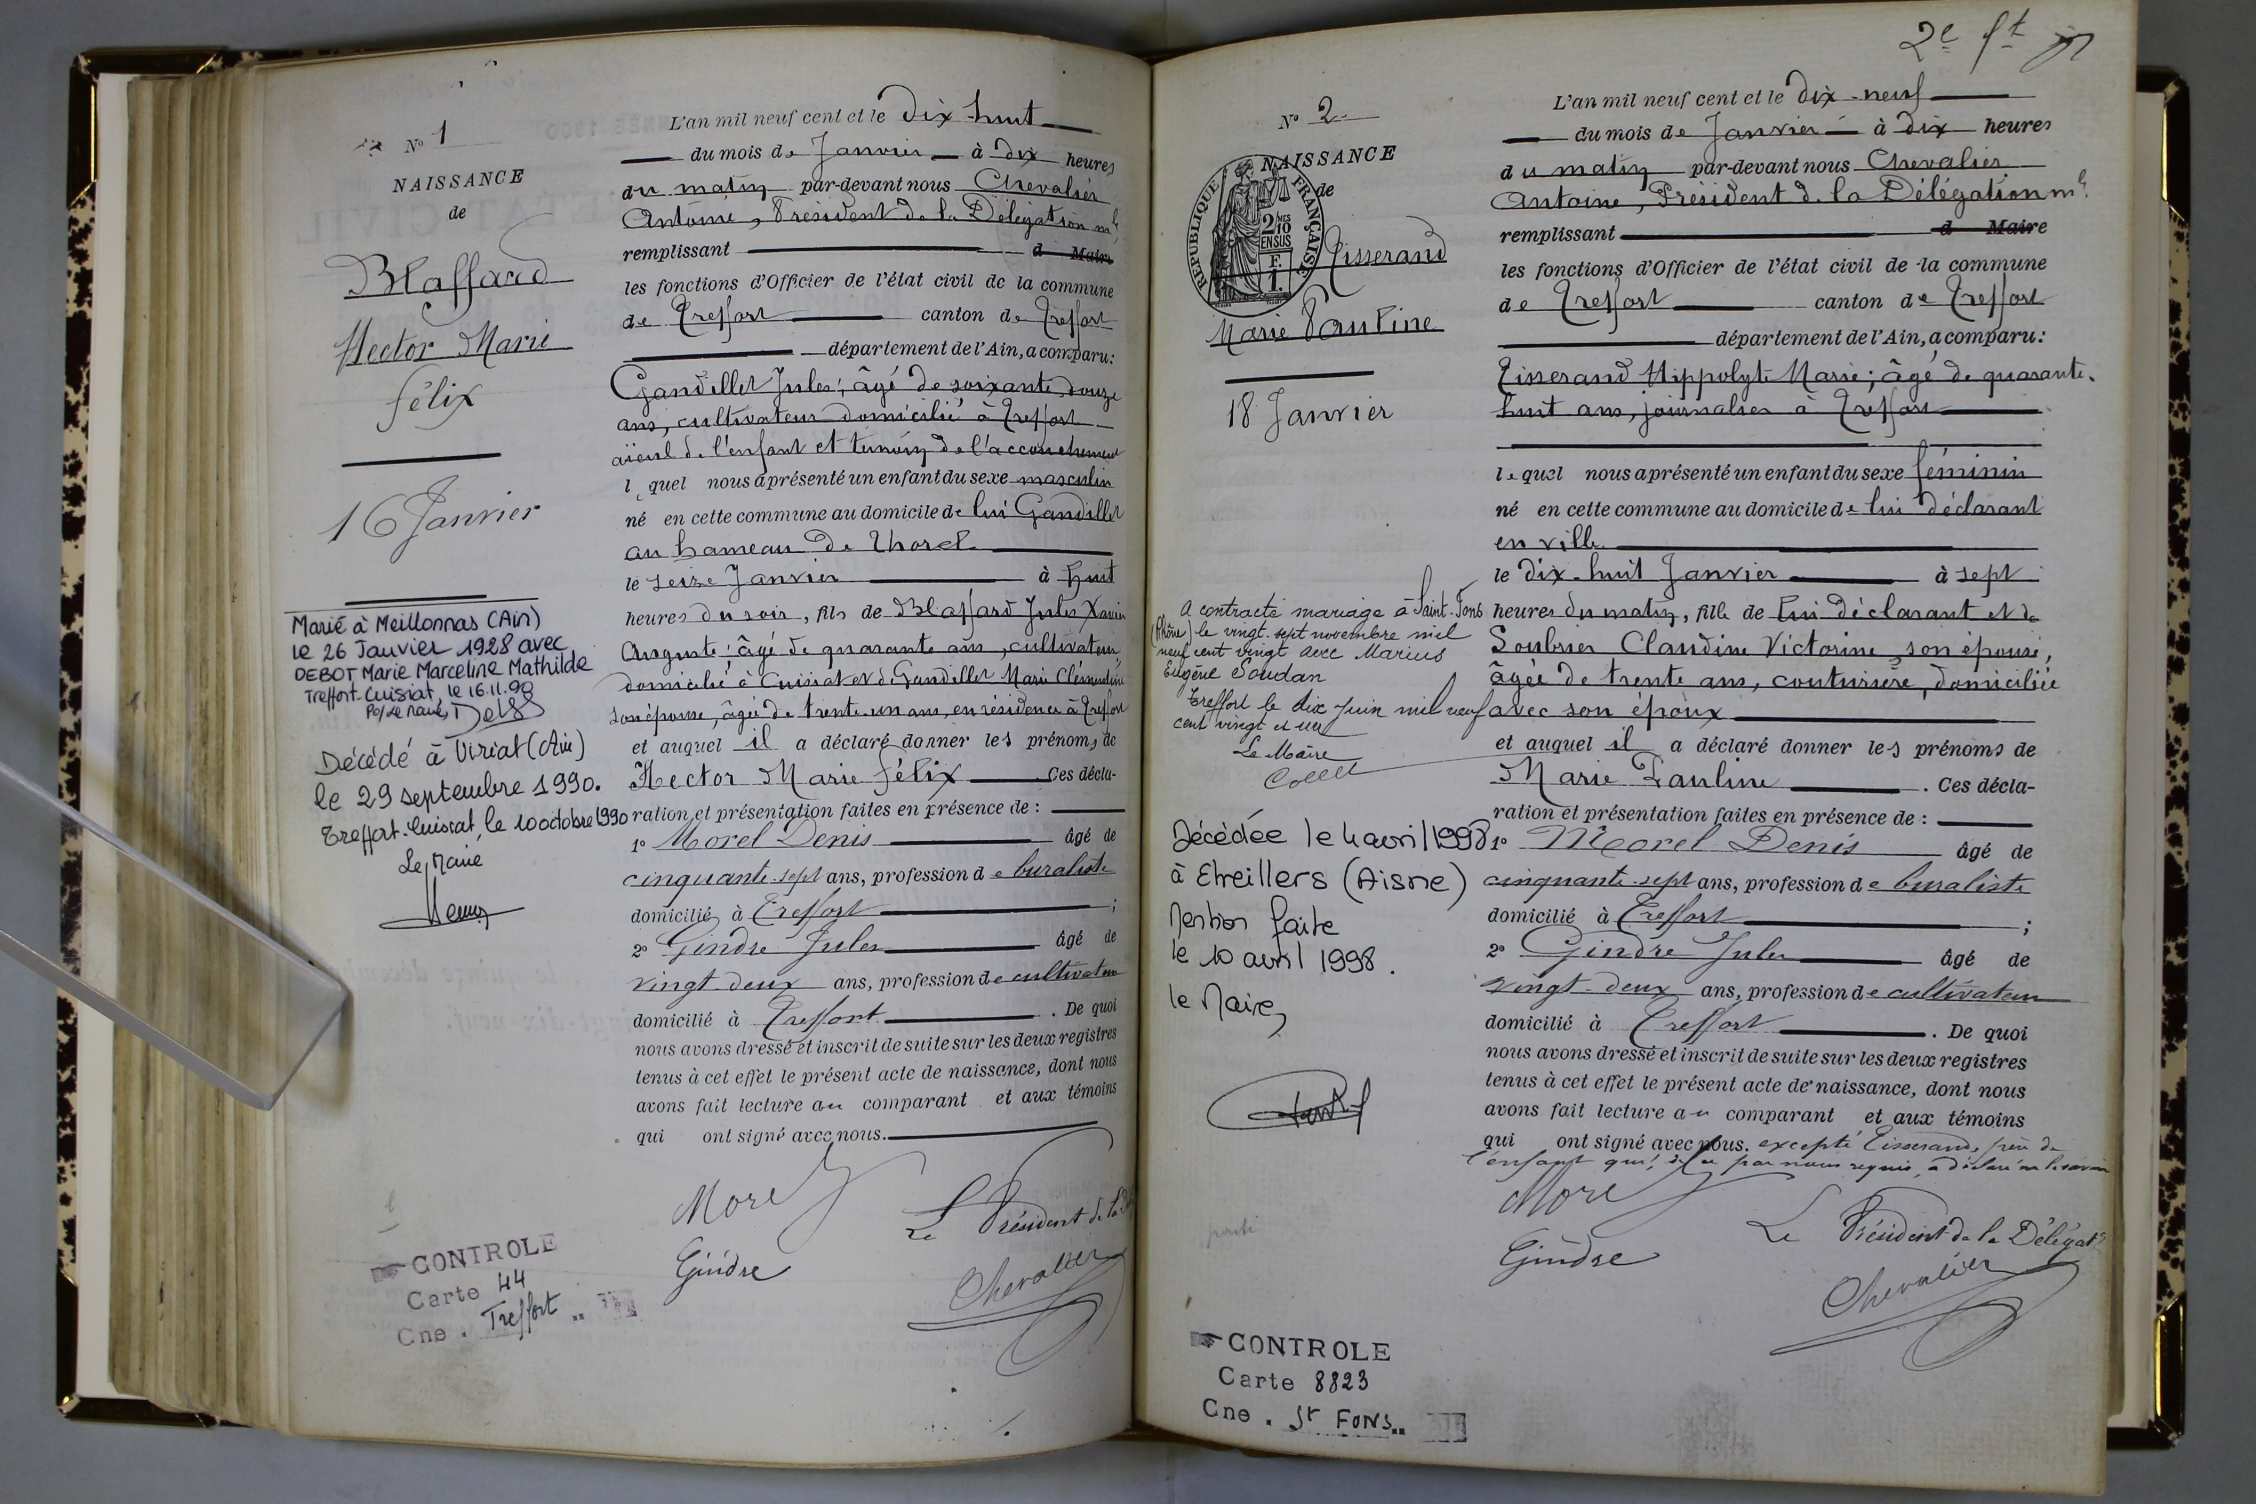 N° 1
NAISSANCE
de
Blaffard
Hector Marie
félix
16 Janvier
Marié à Meillonnas (Ain)
le 26 Janvier 1928 avec
DEBOT Marie Marceline Mathilde
Treffort. Cuisiat, le 16.11.90
Po/Le Maire,
Décédé à Viriat (Ain)
le 29 septembre 1990.
Treffort-Cuisiat, le 10 octobre 1990
Le Maire
CONTROLE
Carte 44
Cne. Treffort
L'an mil neuf cent et le dix-huit
du mois de Janvier à dix heures
du matin par-devant nous Chevalier
Antoine, Président de la Délégation mle
remplissant d Maire
les fonctions d'Officier de l'état civil de la commune
de Treffort canton de Treffort
département de l'Ain, a comparu:
Gandillet Jules; âgé de soixante-douze
ans, cultivateur domicilié à Treffort
aïeul de l'enfant et témoin de l'accouchement
l quel nous a présenté un enfant du sexe masculin
né en cette commune au domicile de lui Gandillet
au hameau de Thorel
le seize Janvier à huit
heures du soir, fils de Blaffard Jules Xavier
Auguste; âgé de quarante ans, cultivateur
domicilié à Cuisiat et de Gandillet Marie Clémentine
son épouse, âgée de trente-un ans, en résidence à Treffort
et auquel il a déclaré donner les prénoms de
Hector Marie félix Ces décla-
ration et présentation faites en présence de :
1° Morel Denis âgé de
cinquante-sept ans, profession de buraliste
domicilié à Treffort ;
2° Gindre Jules âgé de
vingt-deux ans, profession de cultivateur
domicilié à Treffort . De quoi
nous avons dressé et inscrit de suite sur les deux registres
tenus à cet effet le présent acte de naissance, dont nous
avons fait lecture au comparant et aux témoins
qui ont signé avec nous.
Morel
Le Président de la
Gindre
Chevalier
2e ft
N° 2
NAISSANCE
de
REPUBLIQUE FRANÇAISE
2/10 EN SUS
F. 1.
Tisserand
Marie Pauline
18 Janvier
A contracté mariage à Saint-Fons
(Rhône) le vingt-sept novembre mil
neuf cent vingt avec Marius
Eugène Soudan
Treffort le dix juin mil neuf
cent vingt et un
Le Maire
Décédée le 4 avril 1998
à Etreillers (Aisne)
Mention faite
le 10 avril 1998.
le Maire,
CONTROLE
Carte 8823
Cne. St FONS
L'an mil neuf cent et le dix-neuf
du mois de Janvier à dix heures
du matin par-devant nous Chevalier
Antoine, Président de la Délégation mle
remplissant d Maire
les fonctions d'Officier de l'état civil de la commune
de Treffort canton de Treffort
département de l'Ain, a comparu:
Tisserand Hippolyte Marie; âgé de quarante-
huit ans, journalier à Treffort
le quel nous a présenté un enfant du sexe féminin
né en cette commune au domicile de lui déclarant
en ville
le dix-huit Janvier à sept
heures du matin, fille de lui déclarant et de
Soubrier Claudine Victorine, son épouse,
âgée de trente ans, couturière, domiciliée
avec son époux
et auquel il a déclaré donner les prénoms de
Marie Pauline . Ces décla-
ration et présentation faites en présence de :
1° Morel Denis âgé de
cinquante-sept ans, profession de buraliste
domicilié à Treffort ;
2° Gindre Jules âgé de
vingt-deux ans, profession de cultivateur
domicilié à Treffort . De quoi
nous avons dressé et inscrit de suite sur les deux registres
tenus à cet effet le présent acte de naissance, dont nous
avons fait lecture au comparant et aux témoins
qui ont signé avec nous. excepté Tisserand, père de
l'enfant qui, de ce par nous requis, a déclaré ne le savoir
Morel
Le Président de la Délégat
Gindre
Chevalier